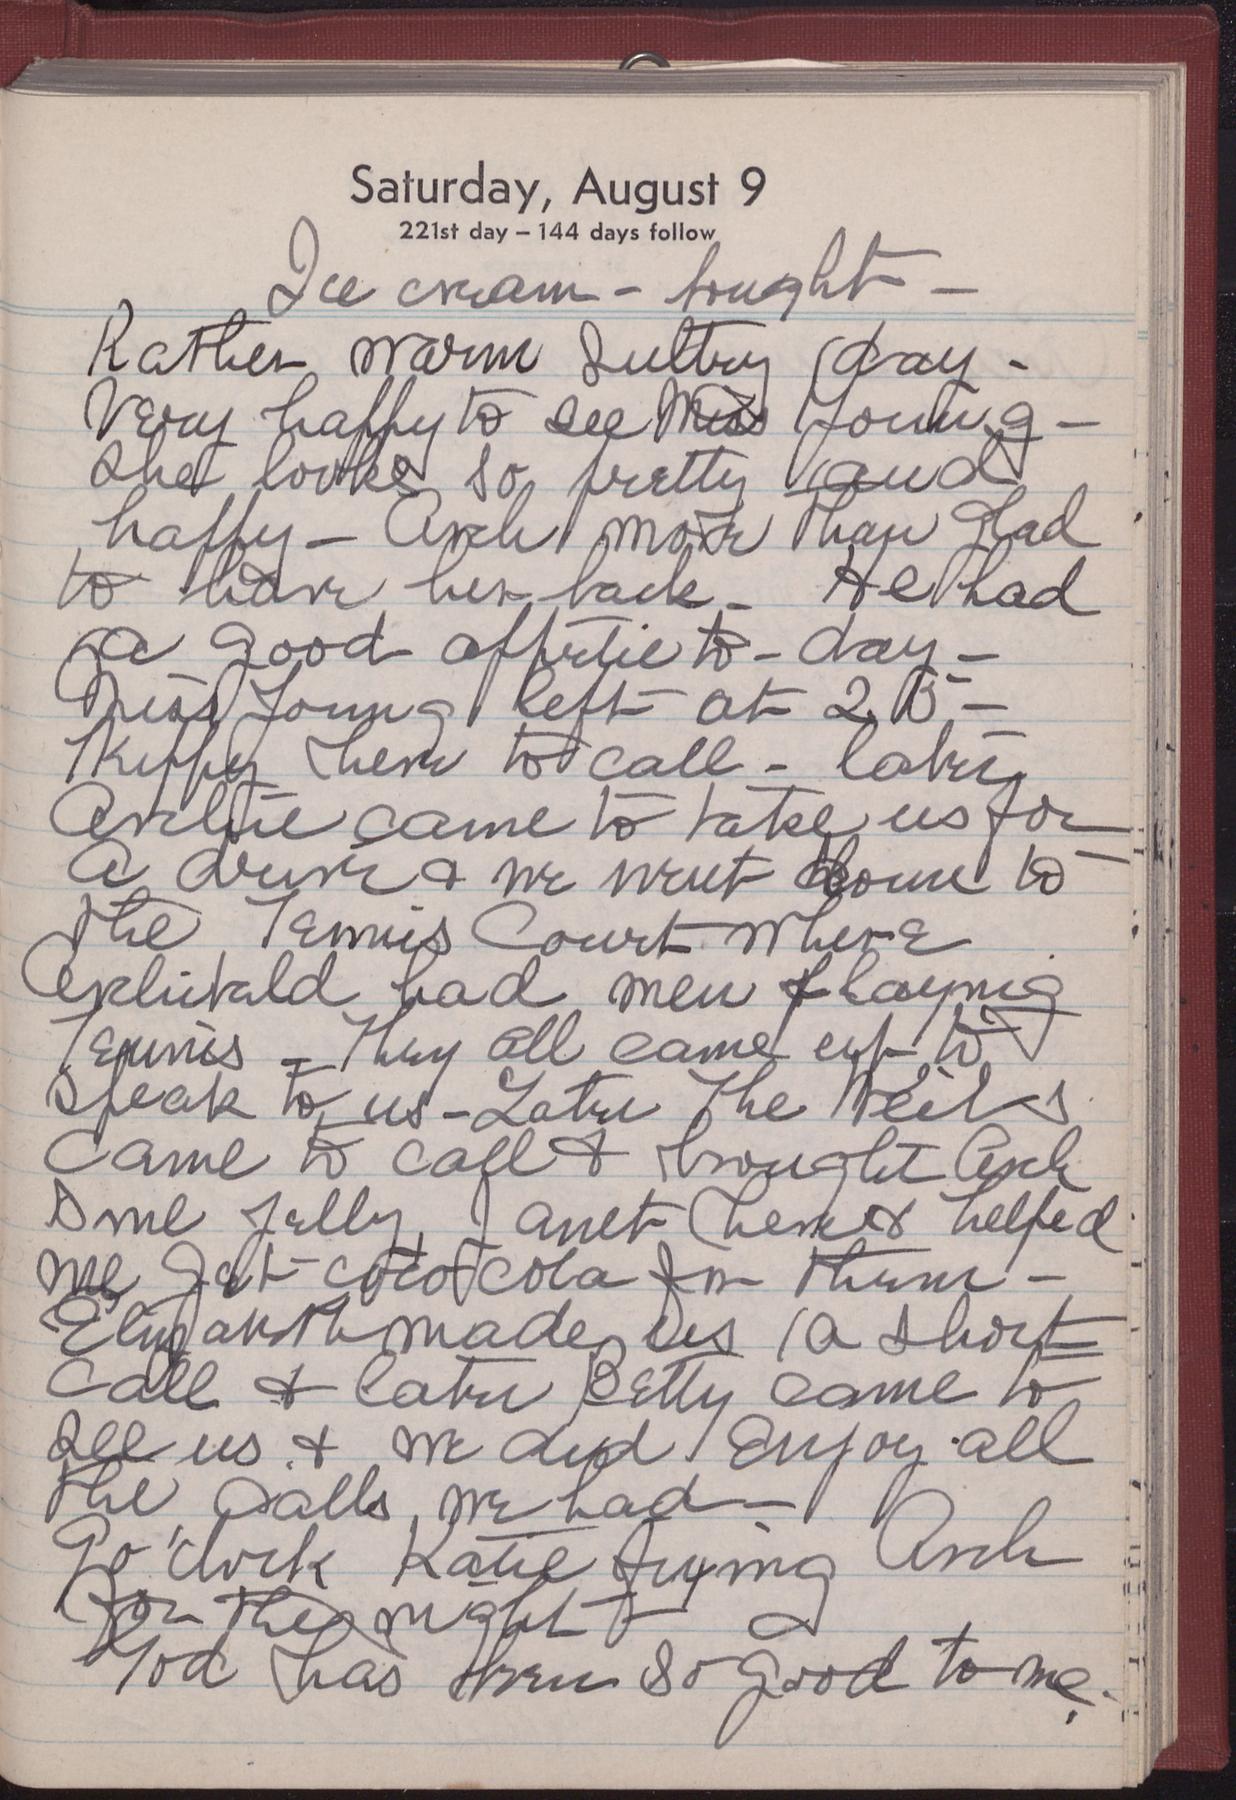 Saturday, August 9
221st day – 144 days follow
Ice cream - bought -
Rather warm sultry day -
Very happy to see Miss Young -
She looks so pretty and
happy - Arch more than glad
to have her back - He had
a good appetite to-day -
Miss Young left at 2.15 -
Kippy here to call - later
Archie came to take us for
a drive & we went down to
the Tennis Court where
Archibald had men playing
Tennis - They all came up to
speak to us - Later the
came to call & brought Arch
some jelly, Janet here & helped
me get coco cola for them -
Elizabeth made us a short
call & later Betty came to
see us & we did enjoy all
the calls we had -
9 o'clock Katie fixing Arch
for the night -
God has been so good to me.